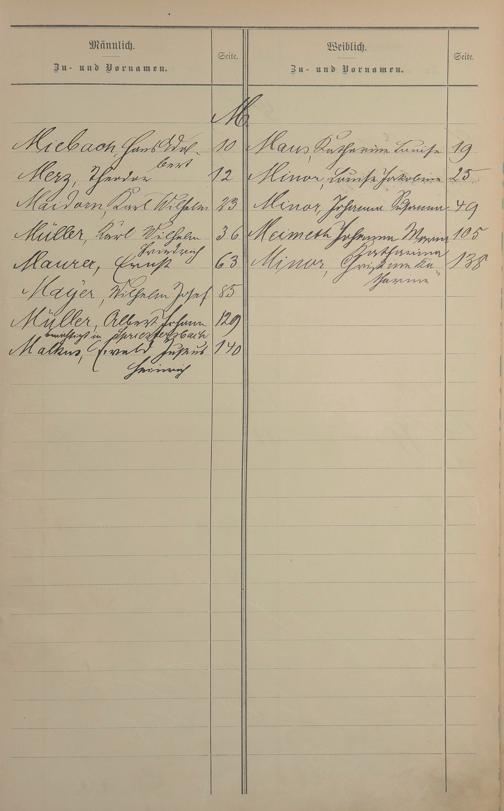 Männlich.
Zu- und Vornamen.
Seite.
M.
Miebach, Hans Adal-
bert 10
Merz, Theodor 12
Maidorn, Karl Wilhelm 23
Müller, Karl Wilhelm
Friedrich 36
Maurer, Ernst 63
Mayer, Wilhelm Josef 85
Müller, Albert Johann 129
in
Malkus, Ewald Justus 140
Heinrich
Weiblich.
Zu- und Vornamen.
Seite.
Maus, Katharine Luise 19
Minor, Luise Jakobine 25
Minor, Johanna Susanna 49
Meimeth Johanna Maria 105
Katharina
Minor, Christine Ka- 138
tharine